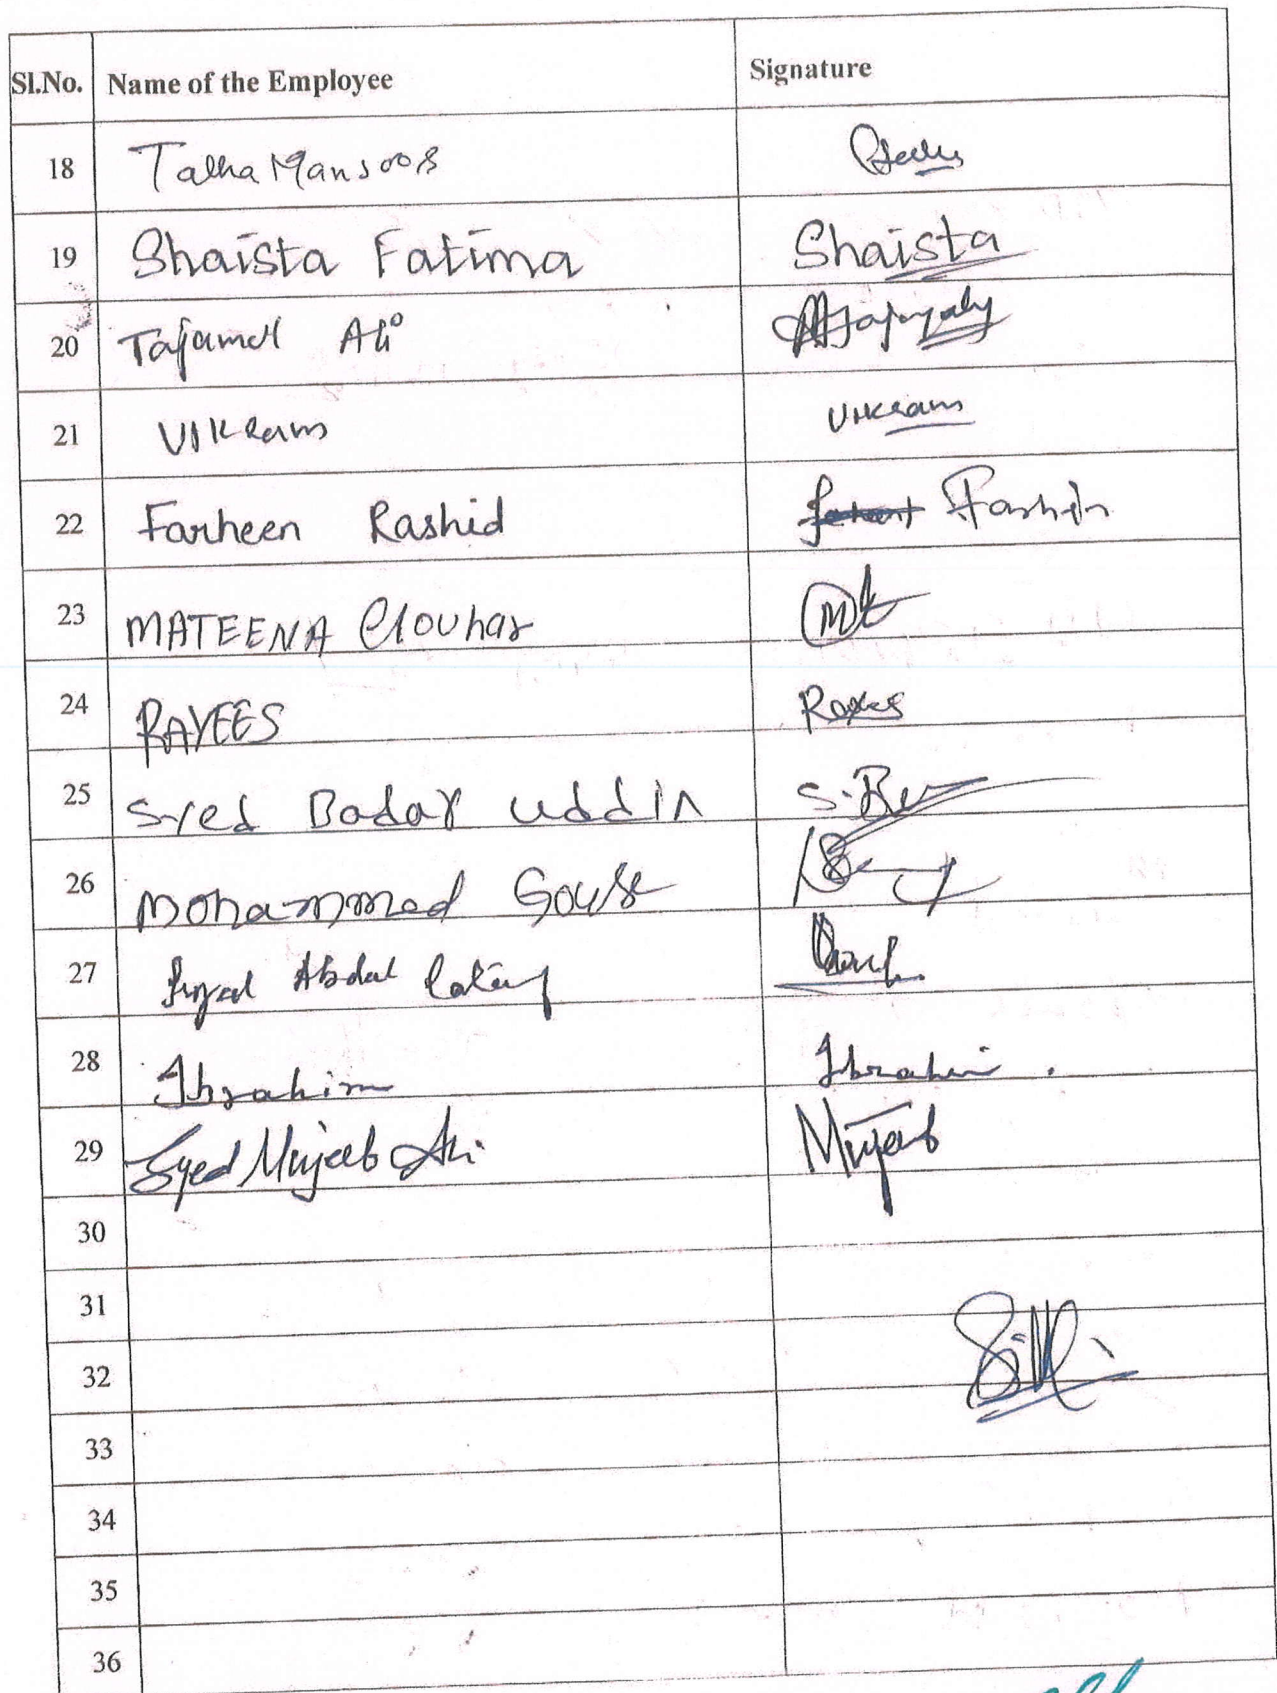 Sl.No. Name of the Employee Signature
18 Talha Mansoor
19 Shaista Fatima Shaista
20 Tajamul Ali
21 Vikram Vikram
22 Farheen Rashid
23 MATEENA
24 RAYEES
25 Syed Badar uddin
26 Mohammed Gouse
27 Abdul
28 Ibrahim Ibrahim
29 Syed Mujeeb Ali Mujeeb
30
31
32
33
34
35
36